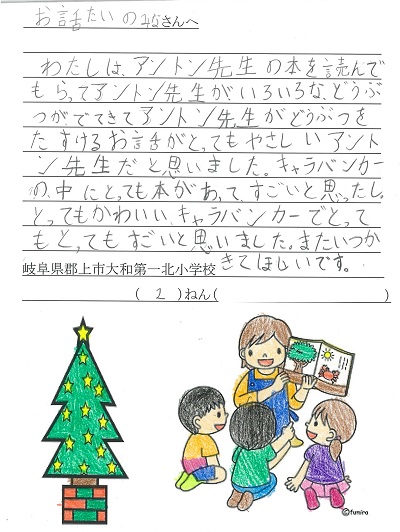 お話たいのみなさんへ
わたしは、アントン先生の本を読んで
もらってアントン先生が、いろいろな、どうぶ
つがでてきてアントン先生がどうぶつを
たすけるお話がとってもやさしいアント
ン先生だと思いました。キャラバンカー
の、中にとっても本があって、すごいと思ったし。
とってもかわいい、キャラバンカーでとって
もとってもすごいと思いました。またいつか
きてほしいです。
岐阜県郡上市大和第一北小学校
(2)ねん( )
©fumira